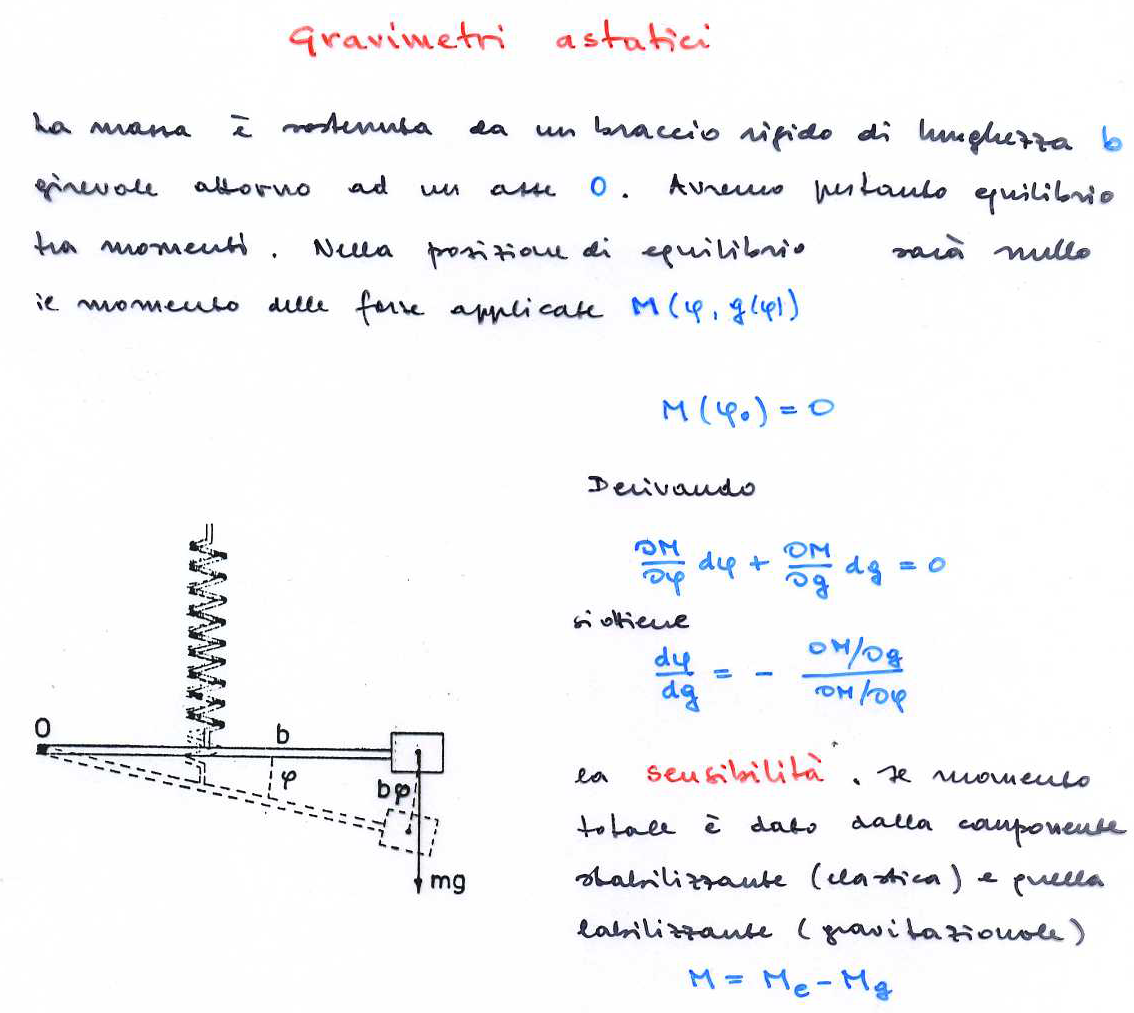 Gravimetri astatici
La massa è sostenuta da un braccio rigido di lunghezza b
girevole attorno ad un asse O. Avremo pertanto equilibrio
tra momenti. Nella posizione di equilibrio sarà nullo
il momento delle forze applicate M(φ, g(φ))
M(φ₀) = 0
Derivando
∂M/∂φ dφ + ∂M/∂g dg = 0
si ottiene
dφ/dg = - (∂M/∂g)/(∂M/∂φ)
O
b
φ
bφ
mg
la sensibilità. Il momento
totale è dato dalla componente
stabilizzante (elastica) e quella
labilizzante (gravitazionale)
M = Me - Mg